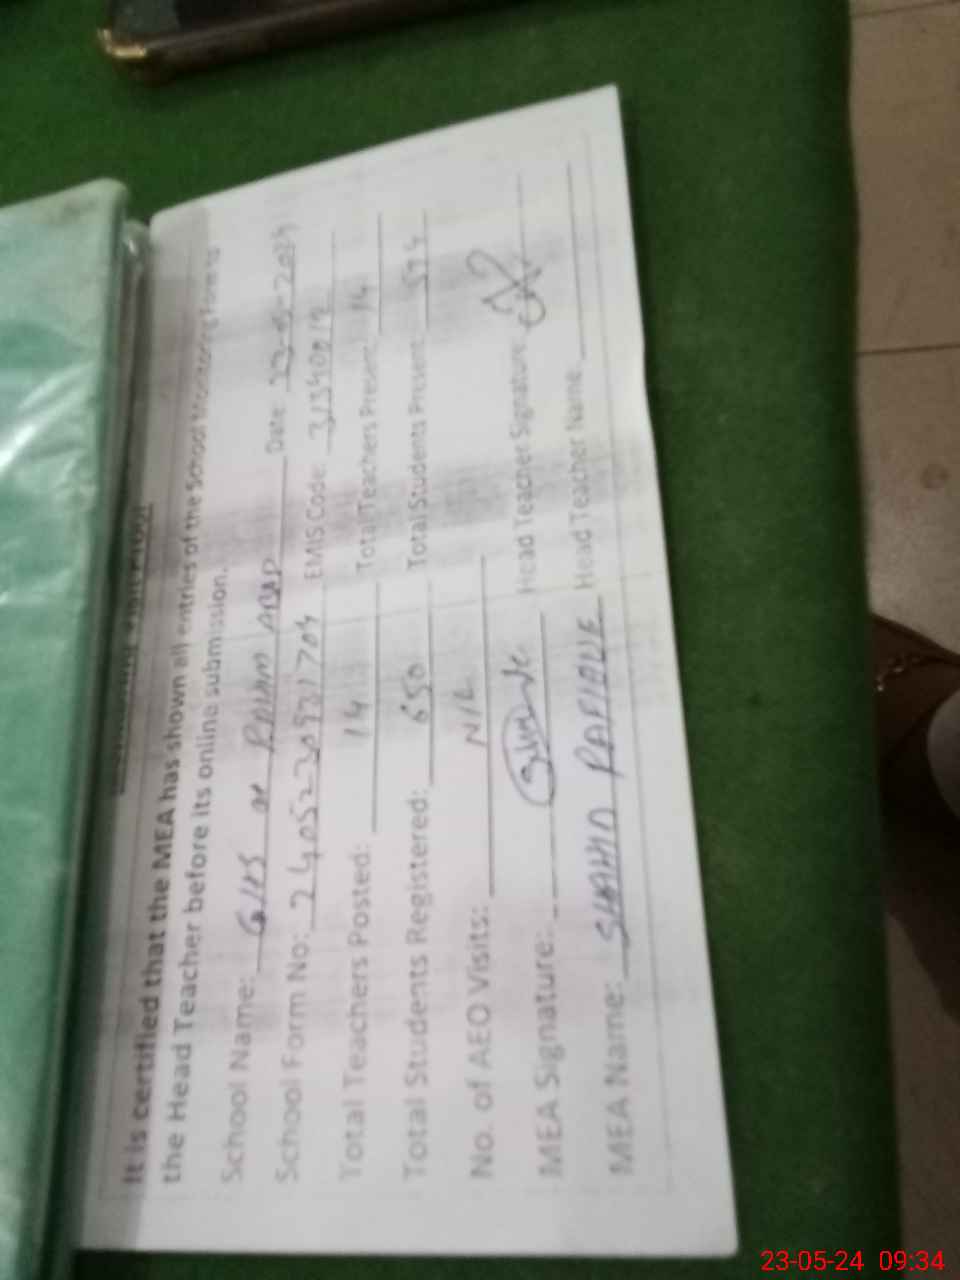 Monitoring Visit Proof
It is certified that the MEA has shown all entries of the School Monitoring Form to
the Head Teacher before its online submission.
School Name: GHS Date: 23-05-2024
School Form No: EMIS Code:
Total Teachers Posted: 14 Total Teachers Present: 14
Total Students Registered: 650 Total Students Present:
No. of AEO Visits: NIL
MEA Signature: Head Teacher Signature:
MEA Name: SHAHID RAFIQUE Head Teacher Name:
23-05-24 09:34